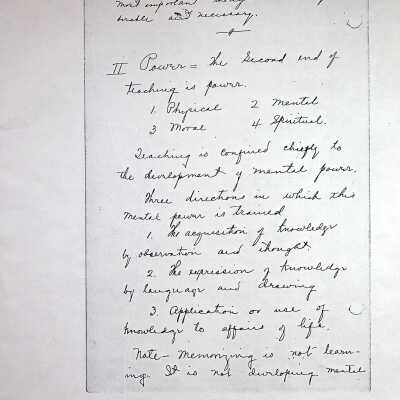 most important
sirable and necessary.
II Power = The Second end of
teaching is power.
1. Physical 2 Mental
3 Moral 4 Spiritual.
Teaching is confined chiefly to
the development of mental power.
Three directions in which this
mental power is trained
1. The acquisition of knowledge
by observation and thought.
2. The expression of knowledge
by language and drawing
3. Application or use of
knowledge to affairs of life.
Note - Memorizing is not learn-
ing. It is not developing mental